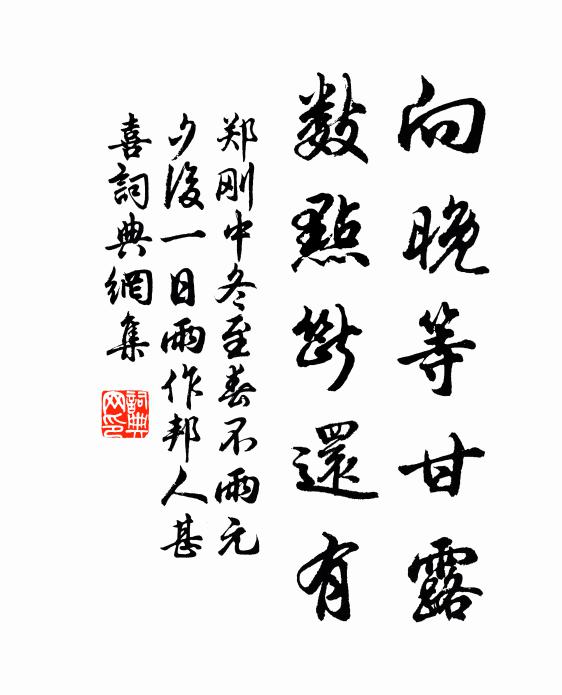 向晚等甘露
數點斷還有
郑刚中冬至春不雨元
夕後一日雨作邦人甚
喜詞典網集
詞典网印